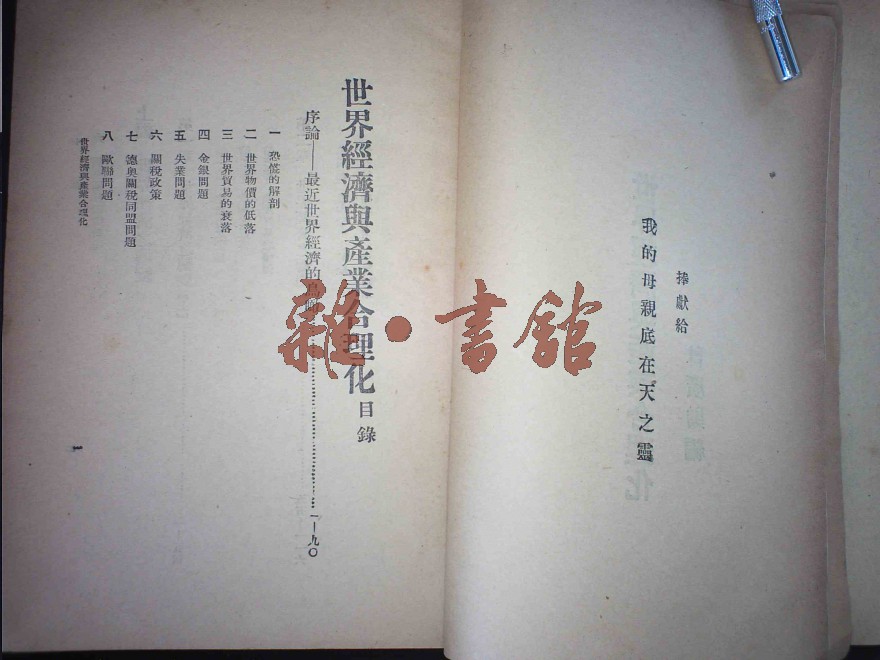 捧獻給
我的母親底在天之靈
世界經濟與產業合理化目錄
序論——最近世界經濟的鳥瞰……一—九〇
一 恐慌的解剖
二 世界物價的低落
三 世界貿易的衰落
四 金銀問題
五 失業問題
六 關稅政策
七 德奧關稅同盟問題
八 歐聯問題
世界經濟與產業合理化
1
雜·書館